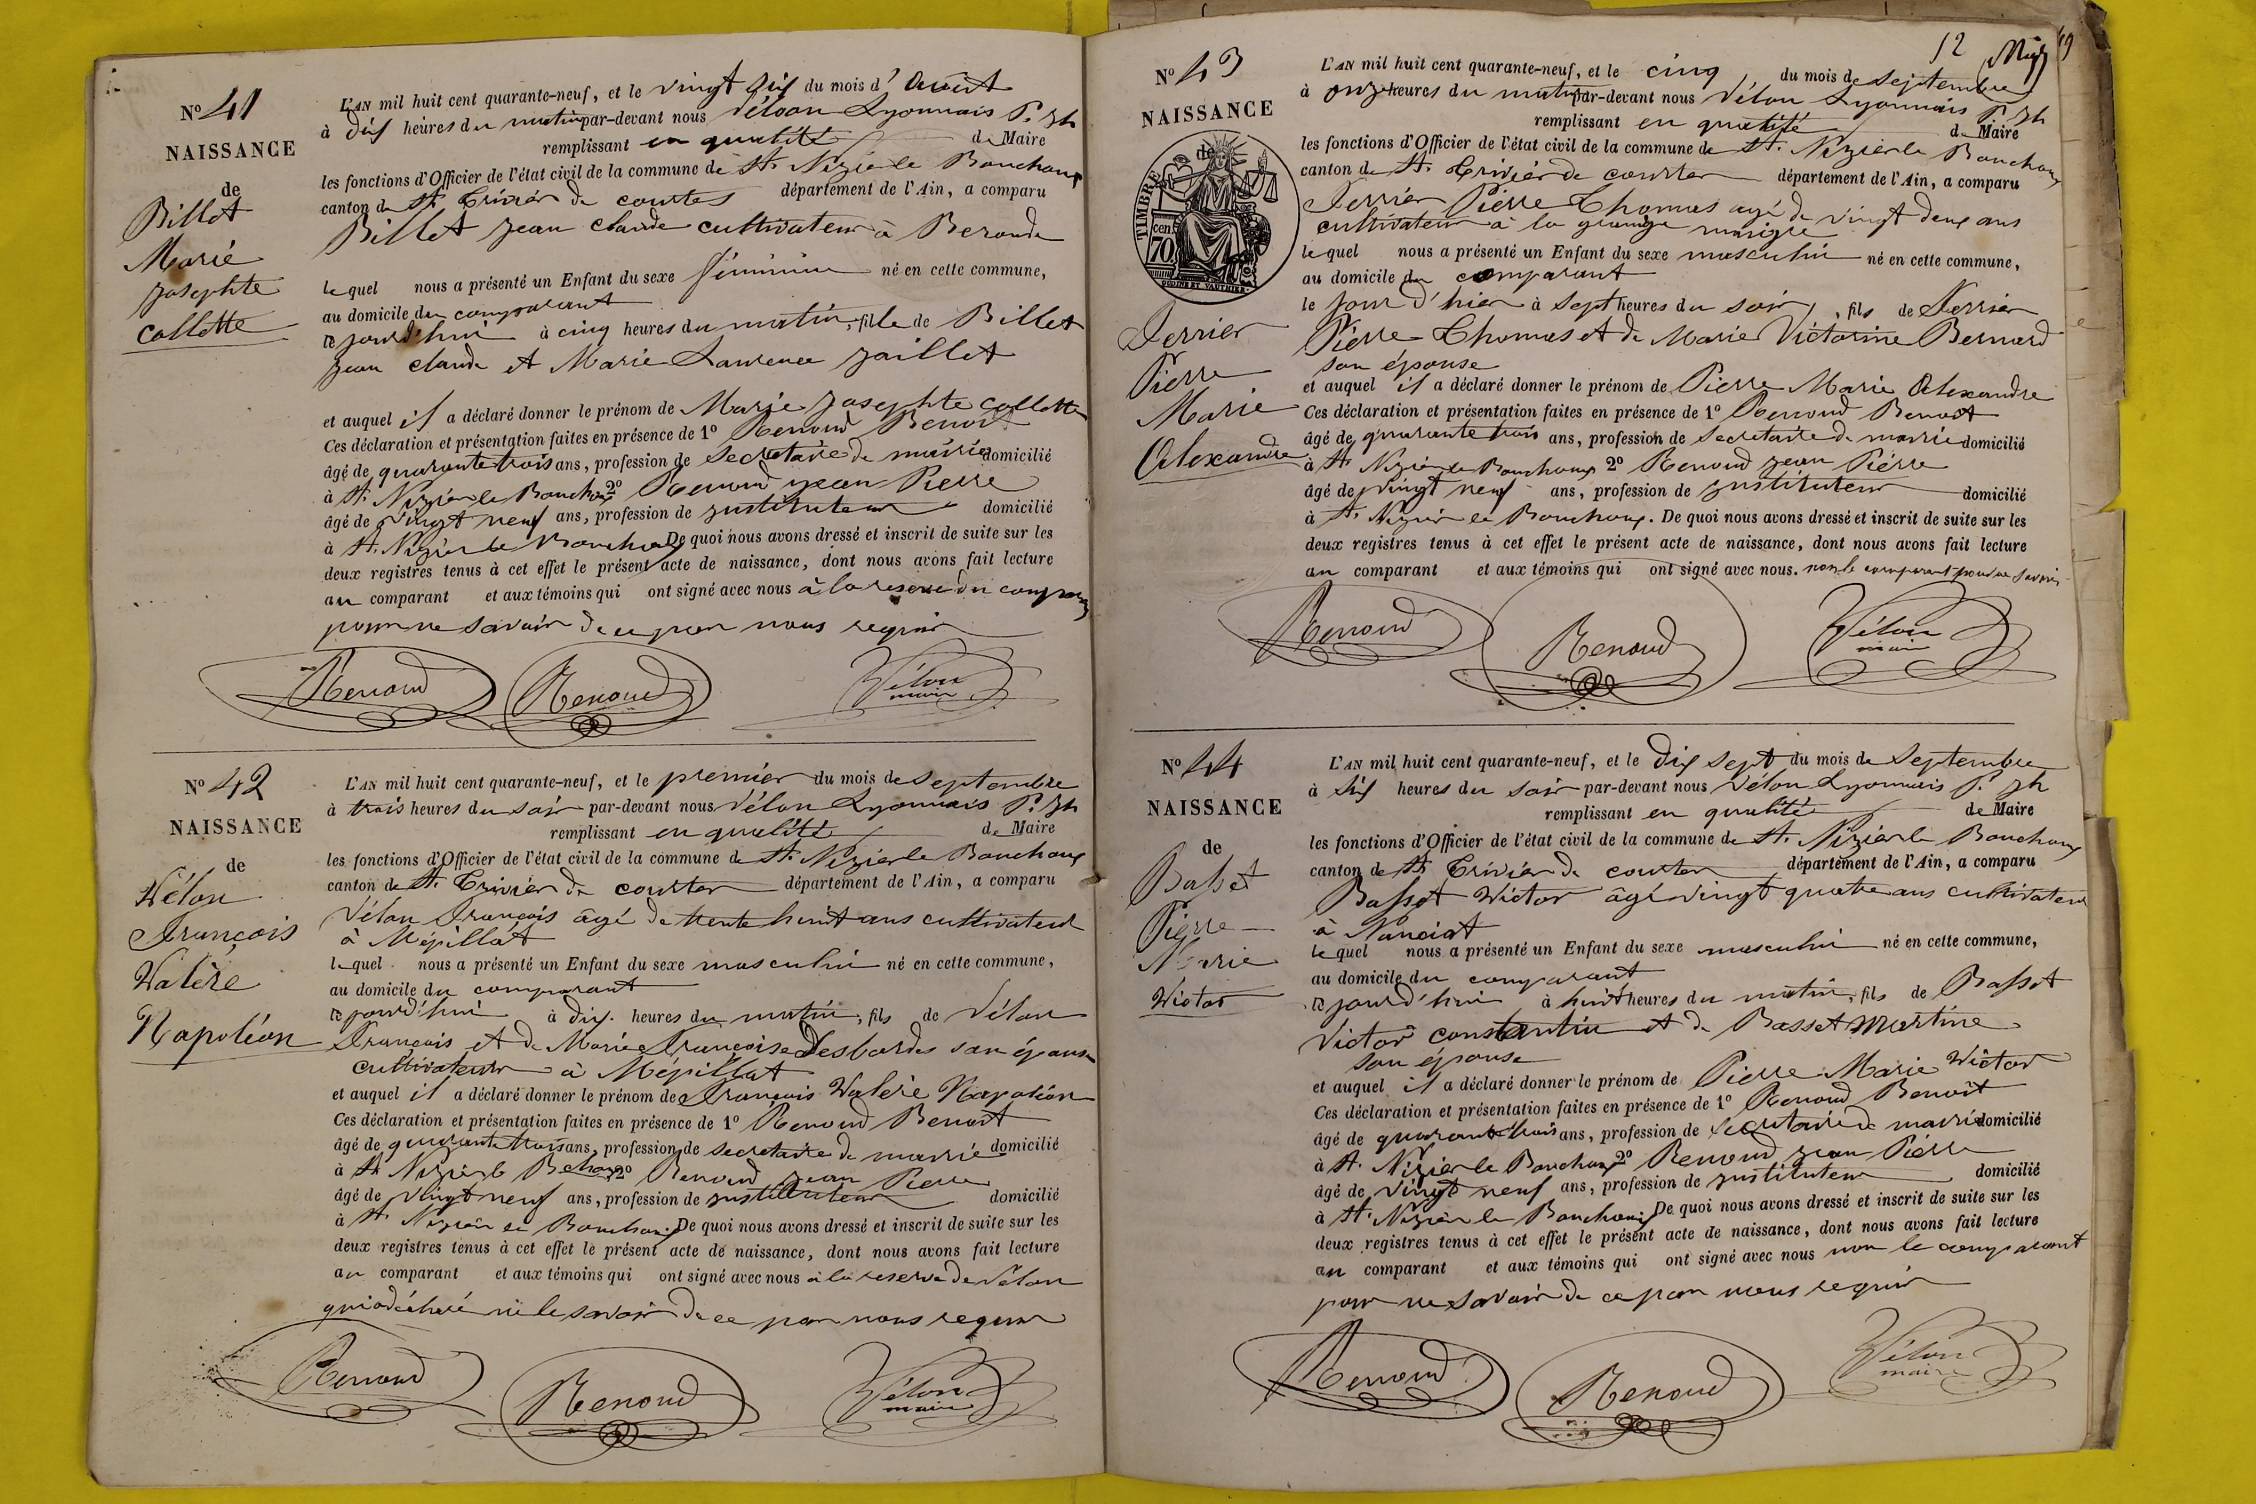 N° 41
NAISSANCE
de
Billet
Marie
Josephte
Collette
L'AN mil huit cent quarante-neuf, et le vingt six du mois d'Aout
à dix heures du matin par-devant nous Vélon Lyonnais P. Jh
remplissant en qualité de Maire
les fonctions d'Officier de l'état civil de la commune de St. Nizier le Bouchoux
canton de St. Trivier de courtes département de l'Ain, a comparu
Billet Jean Claude cultivateur à
lequel nous a présenté un Enfant du sexe féminin né en cette commune,
au domicile du comparant
ce jourd'hui à cinq heures du matin, fille de Billet
Jean Claude et Marie Laurence Jaillet
et auquel il a déclaré donner le prénom de Marie Josephte collette
Ces déclaration et présentation faites en présence de 1° Renoud Benoit
âgé de quarante trois ans, profession de secretaire de mairie domicilié
à St. Nizier le Bouchoux 2° Renoud Jean Pierre
âgé de vingt neuf ans, profession de instituteur domicilié
à St. Nizier le Bouchoux De quoi nous avons dressé et inscrit de suite sur les
deux registres tenus à cet effet le présent acte de naissance, dont nous avons fait lecture
au comparant et aux témoins qui ont signé avec nous à la reserve du comparant
pour ne savoir de ce par nous requis
Renoud Renoud Vélon
maire
N° 42
NAISSANCE
de
Vélon
François
Valère
Napoléon
L'AN mil huit cent quarante-neuf, et le premier du mois de septembre
à trois heures du soir par-devant nous Vélon Lyonnais P. Jh
remplissant en qualité de Maire
les fonctions d'Officier de l'état civil de la commune de St. Nizier le Bouchoux
canton de St. Trivier de courtes département de l'Ain, a comparu
Vélon François âgé de trente huit ans cultivateur
à Mépillat
lequel nous a présenté un Enfant du sexe masculin né en cette commune,
au domicile du comparant
ce jourd'hui à dix heures du matin, fils de Vélon
François et de Marie Françoise Desbordes son épouse
cultivateur à Mépillat
et auquel il a déclaré donner le prénom de François Valère Napoléon
Ces déclaration et présentation faites en présence de 1° Renoud Benoit
âgé de quarante trois ans, profession de secretaire de mairie domicilié
à St Nizier le 2° Renoud Jean Pierre
âgé de vingt neuf ans, profession de instituteur domicilié
à St. Nizier le Bouchoux De quoi nous avons dressé et inscrit de suite sur les
deux registres tenus à cet effet le présent acte de naissance, dont nous avons fait lecture
au comparant et aux témoins qui ont signé avec nous à la reserve de Vélon
qui a déclaré ne le savoir de ce par nous requis
Renoud Renoud Vélon
maire
12
N° 43
NAISSANCE
de
TIMBRE
70 cen.
Ferrier
Pierre
Marie
Alexandre
L'AN mil huit cent quarante-neuf, et le cinq du mois de septembre
à onze heures du matin par-devant nous Vélon Lyonnais P. Jh
remplissant en qualité de Maire
les fonctions d'Officier de l'état civil de la commune de St. Nizier le Bouchoux
canton de St. Trivier de courtes département de l'Ain, a comparu
Ferrier Pierre Thomas agé de vingt deux ans
cultivateur à la grange
lequel nous a présenté un Enfant du sexe masculin né en cette commune,
au domicile du comparant
le jour d'hier à sept heures du soir, fils de Ferrier
Pierre Thomas et de Marie Victorine Bernard
son épouse
et auquel il a déclaré donner le prénom de Pierre Marie Alexandre
Ces déclaration et présentation faites en présence de 1° Renoud Benoit
âgé de quarante trois ans, profession de secretaire de mairie domicilié
à St. Nizier le Bouchoux 2° Renoud Jean Pierre
âgé de vingt neuf ans, profession de instituteur domicilié
à St. Nizier le Bouchoux. De quoi nous avons dressé et inscrit de suite sur les
deux registres tenus à cet effet le présent acte de naissance, dont nous avons fait lecture
au comparant et aux témoins qui ont signé avec nous. non le comparant pour ne savoir
Renoud Renoud Vélon
maire
N° 44
NAISSANCE
de
Basset
Pierre
Marie
Victor
L'AN mil huit cent quarante-neuf, et le dix sept du mois de septembre
à six heures du soir par-devant nous Vélon Lyonnais P. Jh
remplissant en qualité de Maire
les fonctions d'Officier de l'état civil de la commune de St. Nizier le Bouchoux
canton de St Trivier de courtes département de l'Ain, a comparu
Basset Victor âgé vingt quatre ans cultivateur
à Nanciat
lequel nous a présenté un Enfant du sexe masculin né en cette commune,
au domicile du comparant
ce jourd'hui à huit heures du matin, fils de Basset
Victor constantin et de Basset Martine
son épouse
et auquel il a déclaré donner le prénom de Pierre Marie Victor
Ces déclaration et présentation faites en présence de 1° Renoud Benoit
âgé de quarante trois ans, profession de secretaire de mairie domicilié
à St. Nizier le Bouchoux 2° Renoud Jean Pierre
âgé de vingt neuf ans, profession de instituteur domicilié
à St. Nizier le Bouchoux De quoi nous avons dressé et inscrit de suite sur les
deux registres tenus à cet effet le présent acte de naissance, dont nous avons fait lecture
au comparant et aux témoins qui ont signé avec nous non le comparant
pour ne savoir de ce par nous requis
Renoud Renoud Vélon
maire